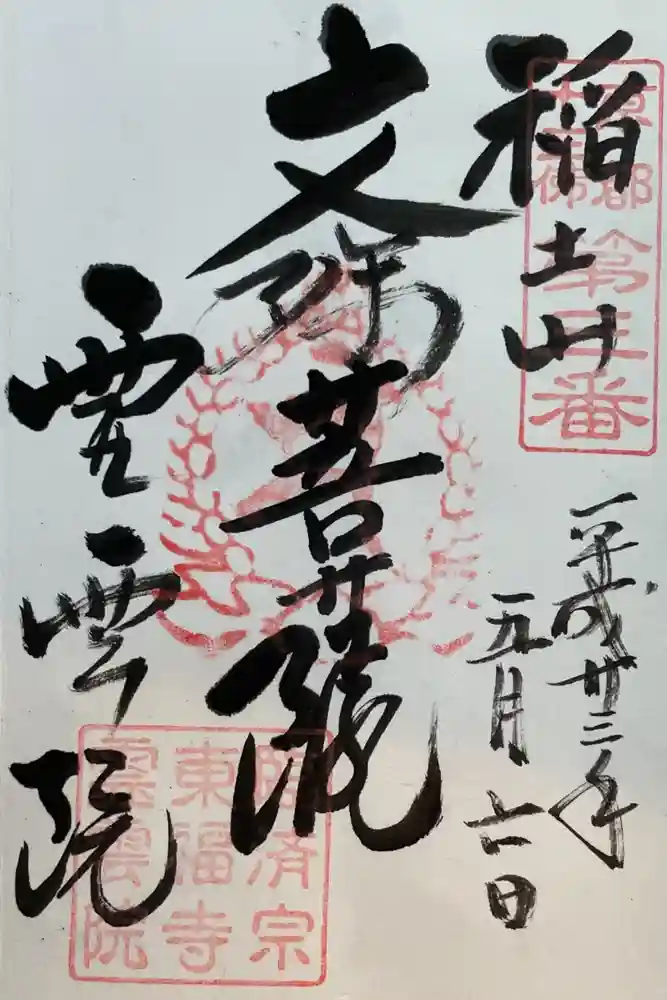 京都十三佛
第三番
稲土山
平成廿三年
五月六日
文殊菩薩
霊雲院
臨済宗
東福寺
霊雲院